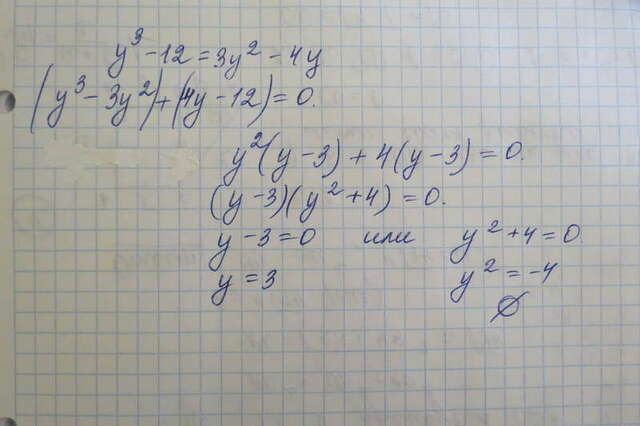 y³ - 12 = 3y² - 4y
(y³ - 3y²) + (4y - 12) = 0.
y²(y - 3) + 4(y - 3) = 0.
(y - 3)(y² + 4) = 0.
y - 3 = 0 или y² + 4 = 0.
y = 3 y² = -4
∅